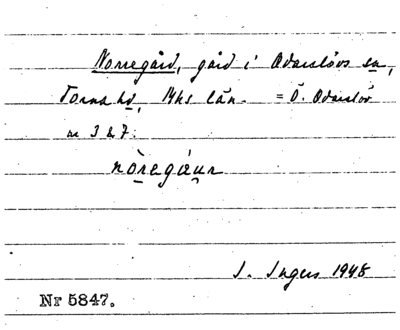 Norregård, gård i Odarslövs sn,
Torna hd, Mhs län. = Ö. Odarslöv
nr 3 & 7.
nòregáur
I. Ingers 1948
Nr 5847.